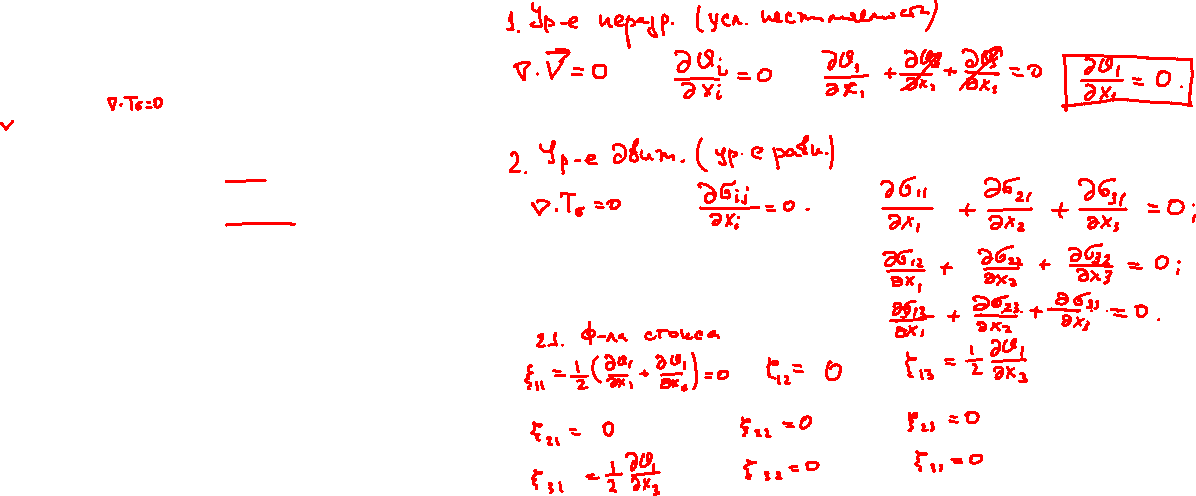 1. Ур-е неразр. (усл. несжимаемости)
∇·V⃗ = 0   ∂υᵢ/∂xᵢ = 0   ∂υ₁/∂x₁ + ∂υ₂/∂x₂ + ∂υ₃/∂x₃ = 0   ∂υ₁/∂x₁ = 0.
∇·Tσ=0
2. Ур-е движ. (ур-е равн.)
∇·Tσ = 0   ∂σᵢⱼ/∂xᵢ = 0.   ∂σ₁₁/∂x₁ + ∂σ₂₁/∂x₂ + ∂σ₃₁/∂x₃ = 0;
∂σ₁₂/∂x₁ + ∂σ₂₂/∂x₂ + ∂σ₃₂/∂x₃ = 0;
∂σ₁₃/∂x₁ + ∂σ₂₃/∂x₂ + ∂σ₃₃/∂x₃ = 0.
2.1. Ф-ла Стокса
ξ₁₁ = 1/2 (∂υ₁/∂x₁ + ∂υ₁/∂x₁) = 0   ξ₁₂ = 0   ξ₁₃ = 1/2 ∂υ₁/∂x₃
ξ₂₁ = 0   ξ₂₂ = 0   ξ₂₃ = 0
ξ₃₁ = 1/2 ∂υ₁/∂x₃   ξ₃₂ = 0   ξ₃₃ = 0